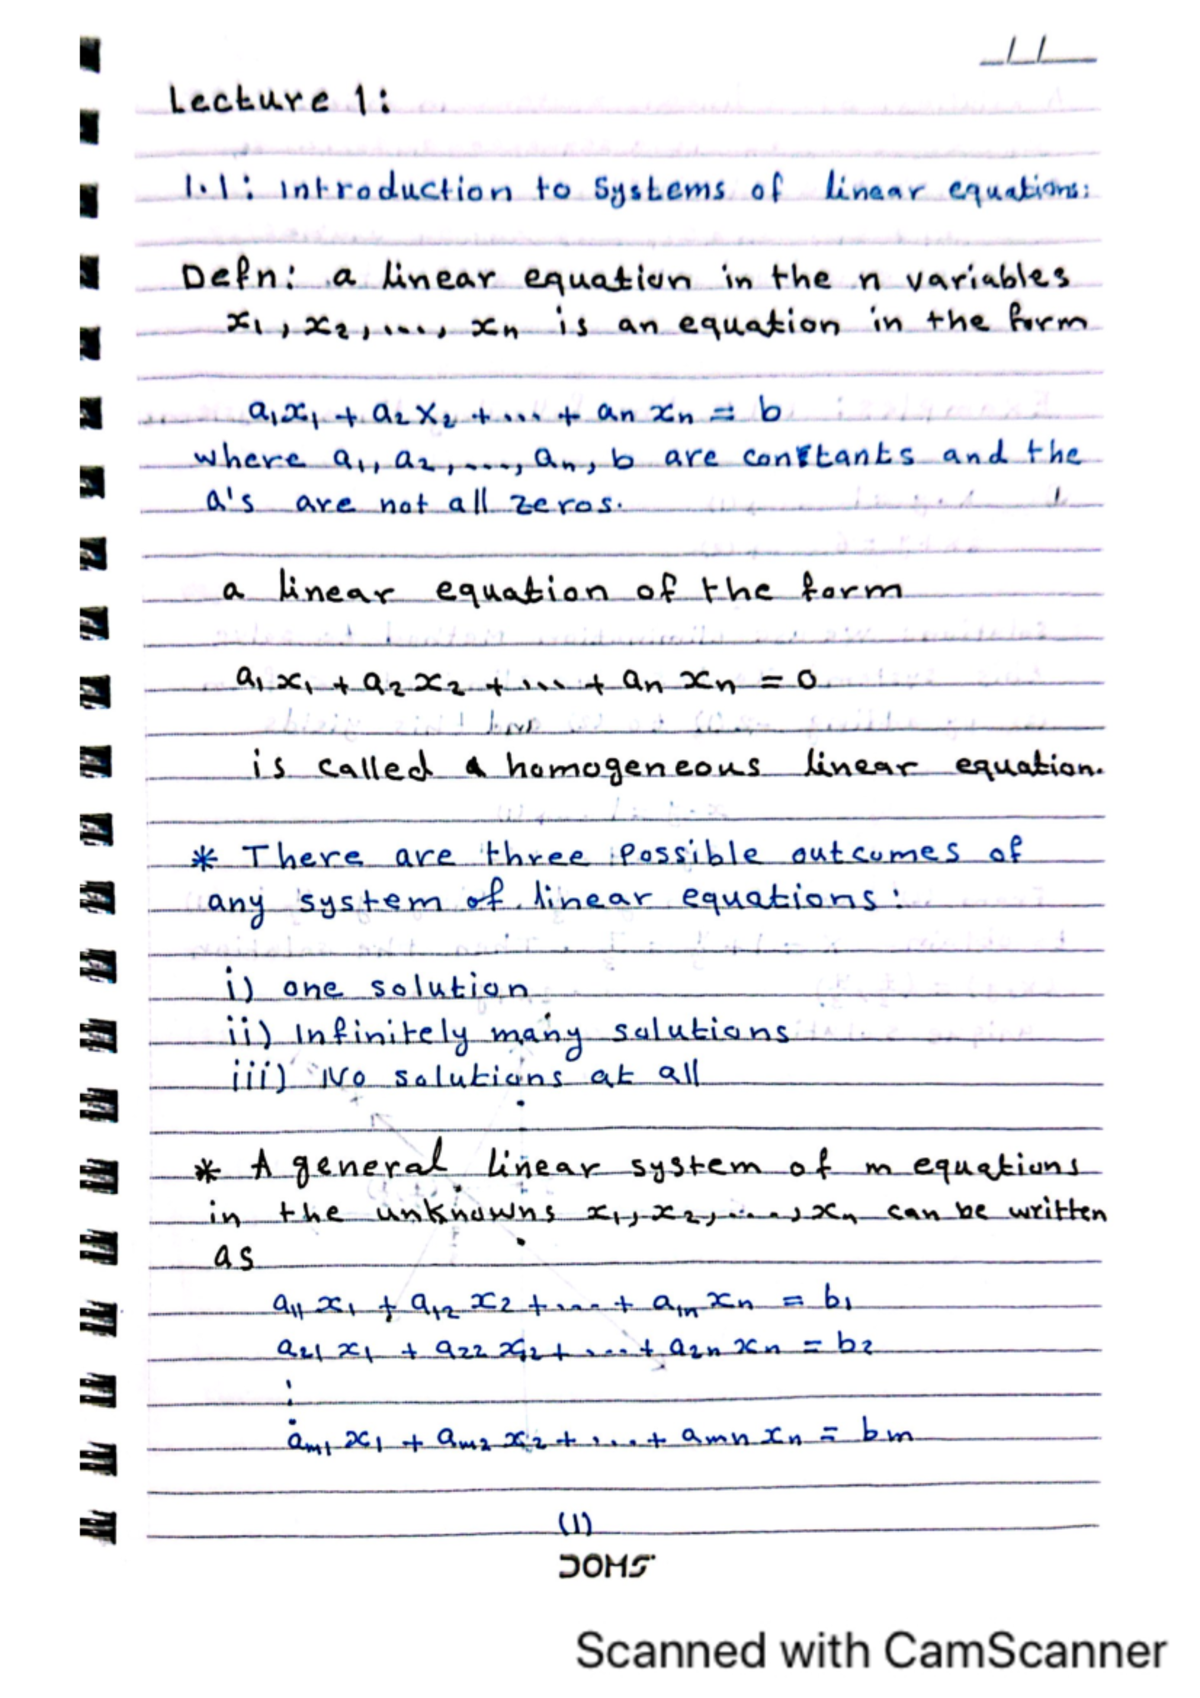 _/_/___
Lecture 1:
1.1: introduction to Systems of linear equations:
Defn: a linear equation in the n variables
x₁, x₂, ..., xn is an equation in the form
a₁x₁ + a₂x₂ + ... + an xn = b
where a₁, a₂, ..., an, b are constants and the
a's are not all zeros.
a linear equation of the form
a₁x₁ + a₂x₂ + ... + an xn = 0
is called a homogeneous linear equation.
* There are three possible outcomes of
any system of linear equations:
i) one solution
ii) Infinitely many solutions
iii) No solutions at all
* A general linear system of m equations
in the unknowns x₁, x₂, ..., xn can be written
as
a₁₁x₁ + a₁₂x₂ + ... + a₁n xn = b₁
a₂₁x₁ + a₂₂x₂ + ... + a₂n xn = b₂
⋮
am₁x₁ + am₂x₂ + ... + amn xn = bm
(1)
DOMS
Scanned with CamScanner